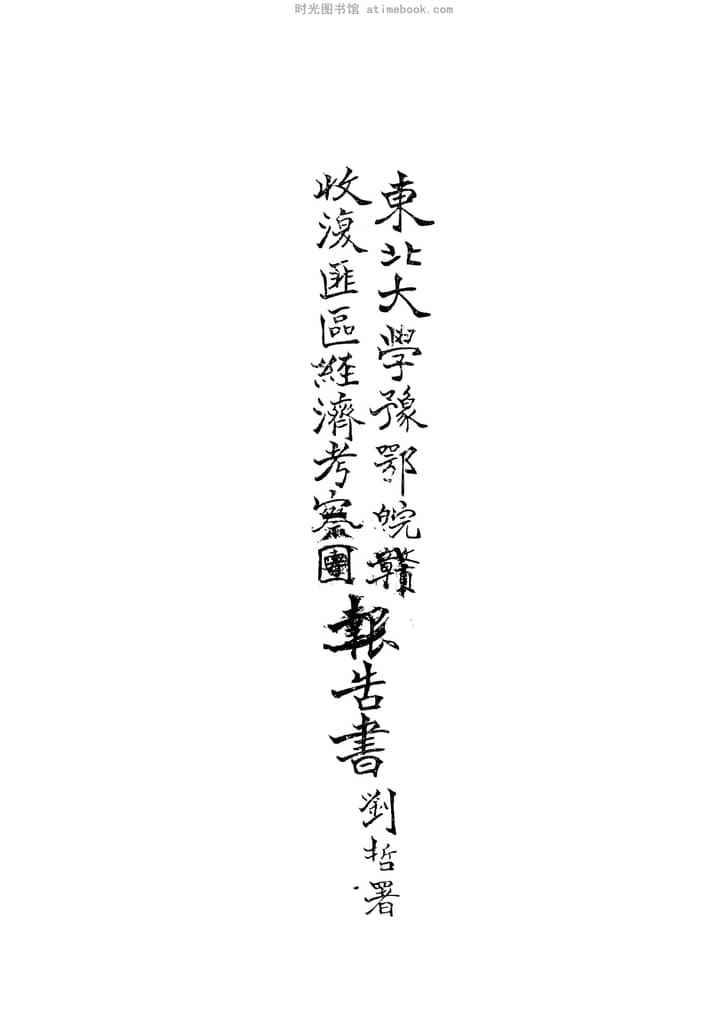 时光图书馆 atimebook.com
東北大學豫鄂皖贛
收復匪區經濟考察團
報告書
劉哲署